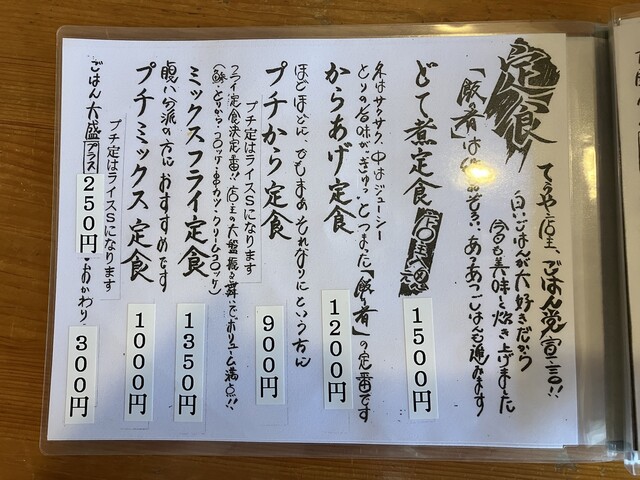 定食
てらや店主、ごはん党宣言!!
白いごはんが大好きだから
今日も美味く炊き上げました
「飯肴」は 品ぞろい、あつあつごはんも進みます
どて煮定食 店主 1500円
外はサクサク、中はジューシー
とりの旨味がぎゅっとつまった「飯肴」の定番です
からあげ定食 1200円
ほどほどに、でもまあそれなりにという方に
プチから定食 900円
プチ定はライスSになります
フライ定食決定番!!店主の大盤振る舞いでボリューム満点!!
(鯵・とりから・コロッケ・串カツ・クリームコロッケ)
ミックスフライ定食 1350円
腹八分派の方におすすめです
プチミックス定食 1000円
プチ定はライスSになります
ごはん大盛 プラス 250円・おかわり 300円